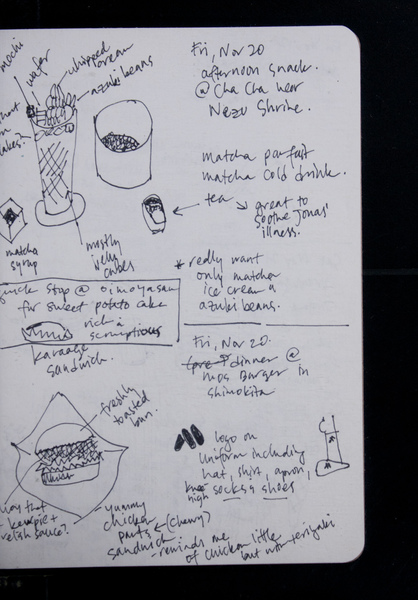 mochi
wafer
whipped cream
azuki beans
mostly
jelly
cubes
matcha
syrup
Fri, Nov 20
afternoon snack.
@ Cha Cha near
Nezu Shrine.
matcha parfait
matcha cold drink.
tea
great to
soothe Jonas'
illness.
* really want
only matcha
ice cream &
azuki beans.
quick stop @ oimoyasan
for sweet potato cake
rich &
scrumptious
Fri, Nov 20.
dinner @
mos Burger in
shimokita
karaage
sandwich.
freshly
toasted
bun.
logo on
uniform including
hat, shirt, apron,
knee high socks & shoes
yummy
chicken
parts (chewy)
sandwich
- reminds me
of chicken little
but non-teriyaki
that
kewpie +
relish sauce?